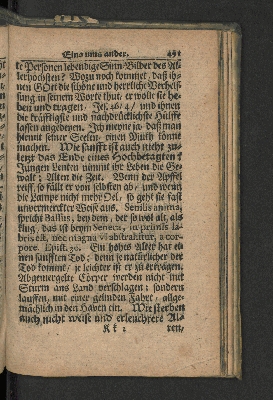 Eins ums ander. 491
te Personen lebendige Sinn-Bilder des Al-
lerhöchsten? Wozu noch kommet, daß ih-
nen GOtt die schöne und herrliche Verheis-
sung in seinem Worte thut, er wolle sie he-
ben und tragen. Jes. 46/4/ und ihnen
die kräfftigste und nachdrücklichste Hülffe
lassen angedeyen. Ich meyne ja, daß man
hiemit seiner Seelen einen Muth könne
machen. Wie sanfft ist auch nicht zu-
letzt das Ende eines Hochbetagten?
Jungen Leuten nimmt ihr Leben die Ge-
walt; Alten die Zeit. Wenn der Apffel
reiff, so fällt er von selbsten ab; und wenn
die Lampe nicht mehr Oel, so geht sie fast
unvermerckter Weise aus. Senilis anima,
spricht Bassus, bey dem, der so wol alt, als
klug, das ist beym Seneca, in primis la-
bris est, nec magna vi abstrahitur, a cor-
pore. Epist. 30. Ein hohes Alter hat ei-
nen sanfften Tod; denn je natürlicher der
Tod kommt, je leichter ist er zu ertragen.
Abgelebte Cörper werden nicht mit
Sturm ans Land verschlagen; sondern
lauffen, mit einer gelinden Fahrt, allge-
mächlich in den Haven ein. Wie sterben
auch nicht weise und erleuchtete Al-
Kk 2 ten,